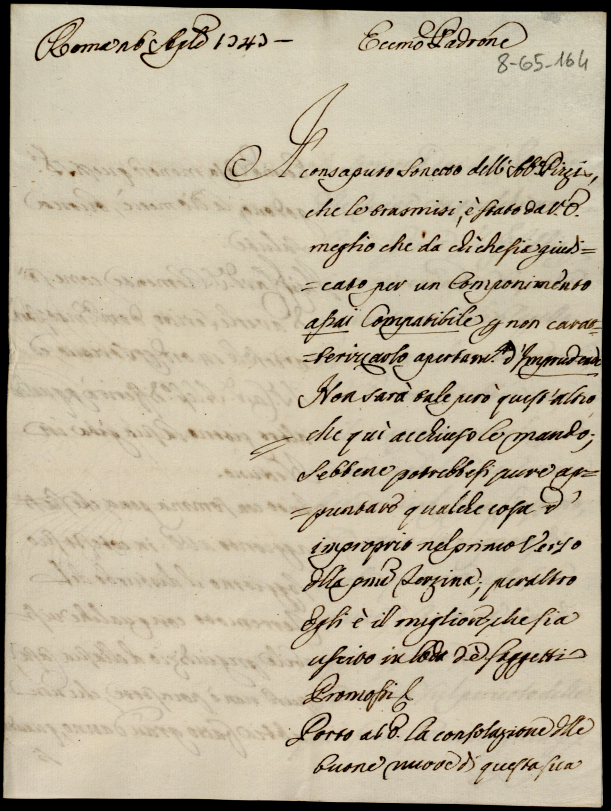 Roma 16 Aglo 1743 — Eccmo Padrone
8-65-164
Il consaputo sonetto delli Abb. Pizzi,
che le trasmisi, è stato da V. E.
meglio che da chi che sia giudi=
=cato per un Componimento
assai Compatibile p non carat=
=terizzarlo apertamte d'Imprudente
Non sarà tale però quest'altro
che quì acchiuso le mando;
sebbene potrebbesi pure ap=
=puntare qualche cosa d'
improprio nel primo Verso
della pma Terzina; peraltro
Egli è il migliore, che sia
uscito in lode de' Soggetti
Promossi
Porto al V. E. la consolazione delle
buone nuove di questa sua